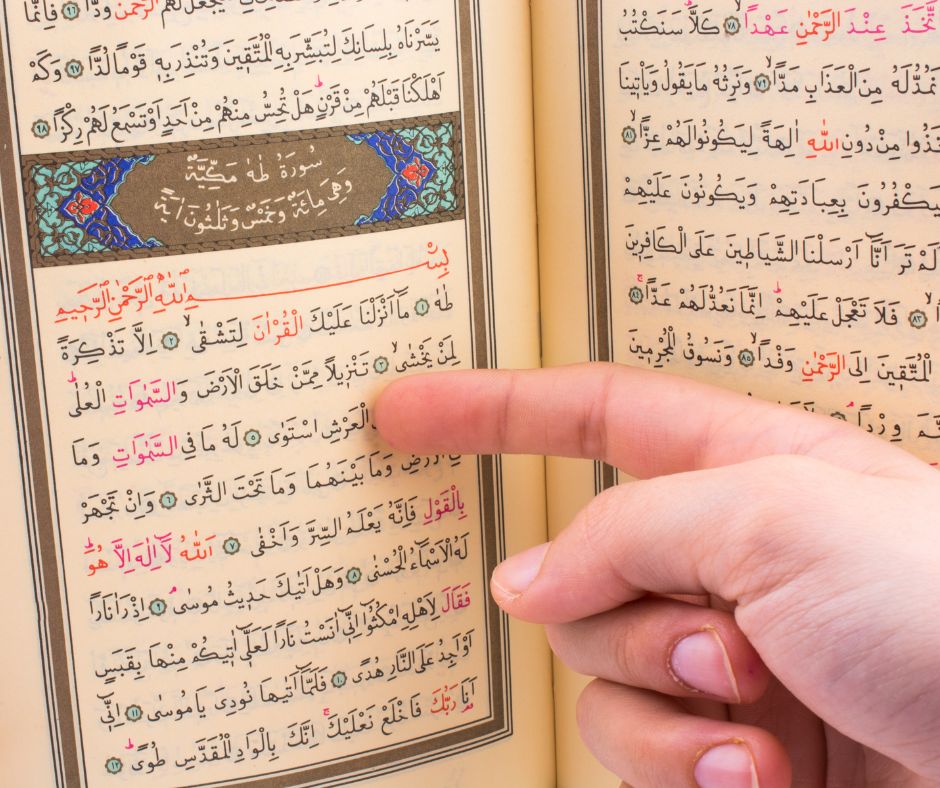 تَّخَذَ عِنْدَ الرَّحْمٰنِ عَهْدًا ﴿٧٨﴾ كَلَّا سَنَكْتُبُ
نَمُدُّ لَهُ مِنَ الْعَذَابِ مَدًّا ﴿٧٩﴾ وَنَرِثُهُ مَا يَقُولُ وَيَأْتِينَا
خَذُوا مِنْ دُونِ اللّٰهِ اٰلِهَةً لِيَكُونُوا لَهُمْ عِزًّا ﴿٨١﴾
يَكْفُرُونَ بِعِبَادَتِهِمْ وَيَكُونُونَ عَلَيْهِمْ
لَمْ تَرَ اَنَّا اَرْسَلْنَا الشَّيَاطِينَ عَلَى الْكَافِرِينَ
﴿٨٣﴾ فَلَا تَعْجَلْ عَلَيْهِمْ اِنَّمَا نَعُدُّ لَهُمْ عَدًّا ﴿٨٤﴾
الْمُتَّقِينَ اِلَى الرَّحْمٰنِ وَفْدًا ﴿٨٥﴾ وَنَسُوقُ الْمُجْرِمِينَ
وِرْدًا
الرَّحْمٰنُ وُدًّا ﴿٩٦﴾ فَاِنَّمَا
يَسَّرْنَاهُ بِلِسَانِكَ لِتُبَشِّرَ بِهِ الْمُتَّقِينَ وَتُنْذِرَ بِهِ قَوْمًا لُدًّا ﴿٩٧﴾ وَكَمْ
اَهْلَكْنَا قَبْلَهُمْ مِنْ قَرْنٍ هَلْ تُحِسُّ مِنْهُمْ مِنْ اَحَدٍ اَوْ تَسْمَعُ لَهُمْ رِكْزًا ﴿٩٨﴾
سُورَةُ طٰهٰ مَكِّيَّةٌ
وَهِيَ مِائَةٌ وَخَمْسٌ وَثَلٰثُونَ اٰيَةً
بِسْمِ اللّٰهِ الرَّحْمٰنِ الرَّحِيمِ
طٰهٰ ﴿١﴾ مَا اَنْزَلْنَا عَلَيْكَ الْقُرْاٰنَ لِتَشْقٰى ﴿٢﴾ اِلَّا تَذْكِرَةً
لِمَنْ يَخْشٰى ﴿٣﴾ تَنْزِيلًا مِمَّنْ خَلَقَ الْاَرْضَ وَالسَّمٰوَاتِ الْعُلٰى
الْعَرْشِ اسْتَوٰى ﴿٥﴾ لَهُ مَا فِي السَّمٰوَاتِ وَمَا
فِي الْاَرْضِ وَمَا بَيْنَهُمَا وَمَا تَحْتَ الثَّرٰى ﴿٦﴾ وَاِنْ تَجْهَرْ
بِالْقَوْلِ فَاِنَّهُ يَعْلَمُ السِّرَّ وَاَخْفٰى ﴿٧﴾ اَللّٰهُ لَا اِلٰهَ اِلَّا هُوَ
لَهُ الْاَسْمَاءُ الْحُسْنٰى ﴿٨﴾ وَهَلْ اَتٰيكَ حَدِيثُ مُوسٰى ﴿٩﴾ اِذْ رَاٰ نَارًا
فَقَالَ لِاَهْلِهِ امْكُثُوا اِنِّي اٰنَسْتُ نَارًا لَعَلِّي اٰتِيكُمْ مِنْهَا بِقَبَسٍ
اَوْ اَجِدُ عَلَى النَّارِ هُدًى ﴿١٠﴾ فَلَمَّا اَتٰيهَا نُودِيَ يَا مُوسٰى ﴿١١﴾ اِنِّي
اَنَا رَبُّكَ فَاخْلَعْ نَعْلَيْكَ اِنَّكَ بِالْوَادِ الْمُقَدَّسِ طُوًى ﴿١٢﴾